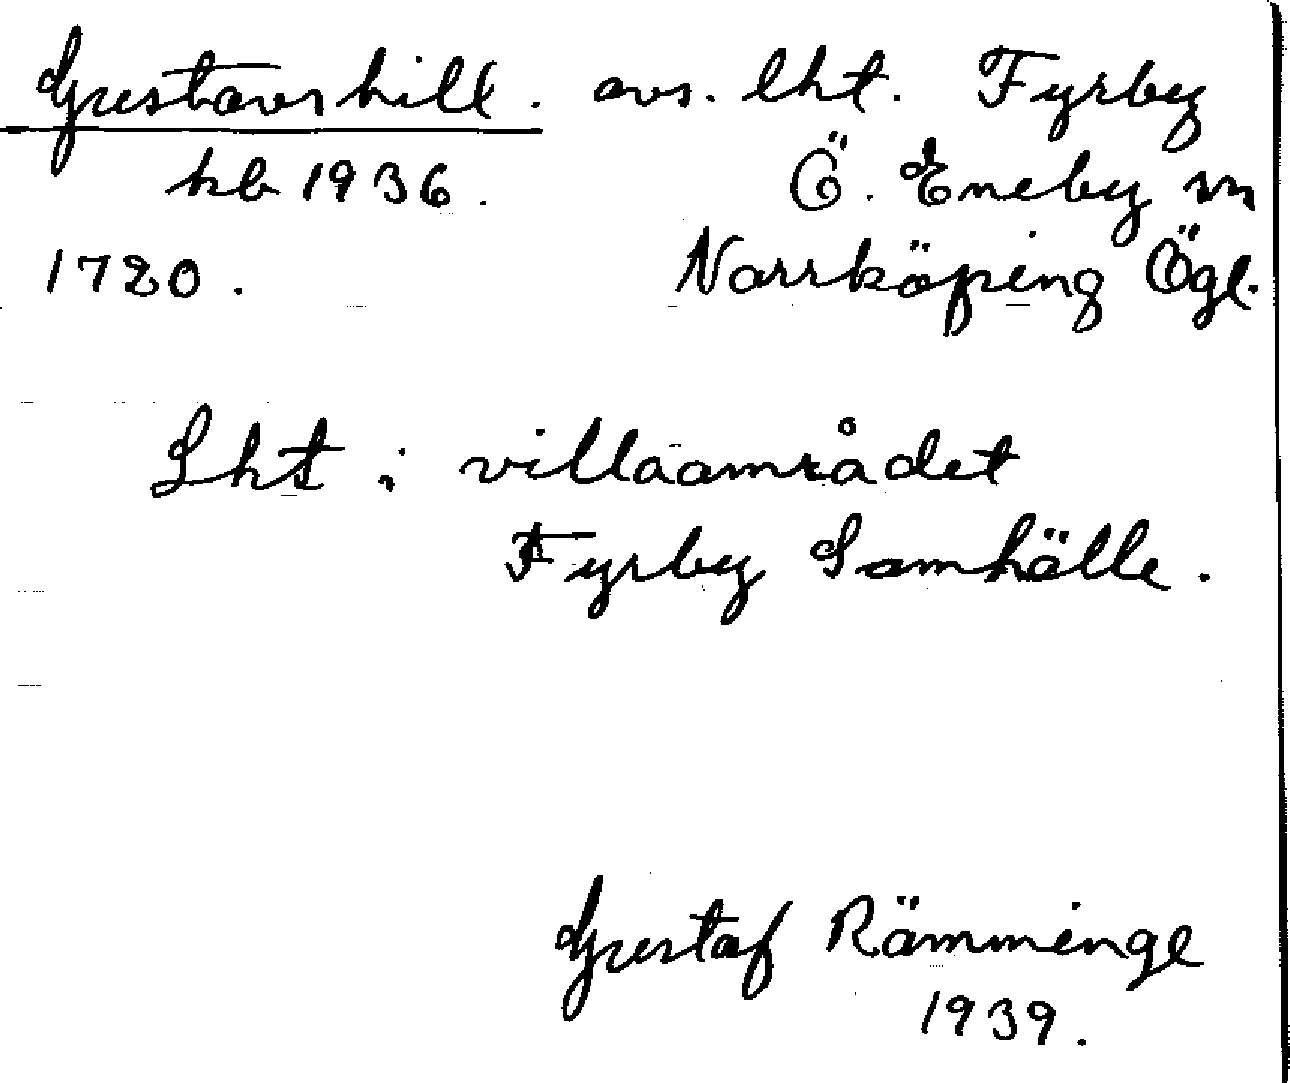 Gustavshill. avs. lht. Fyrby
kb 1936. Ö. Eneby sn
1720. Norrköping Ögl.
Lht i villaområdet
Fyrby Samhälle.
Gustaf Rämminge
1939.